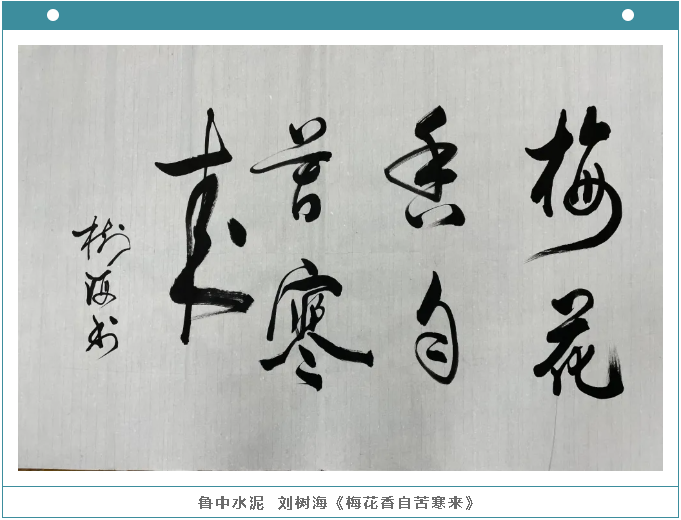 梅花
香自
苦寒
来
树海书
鲁中水泥 刘树海《梅花香自苦寒来》